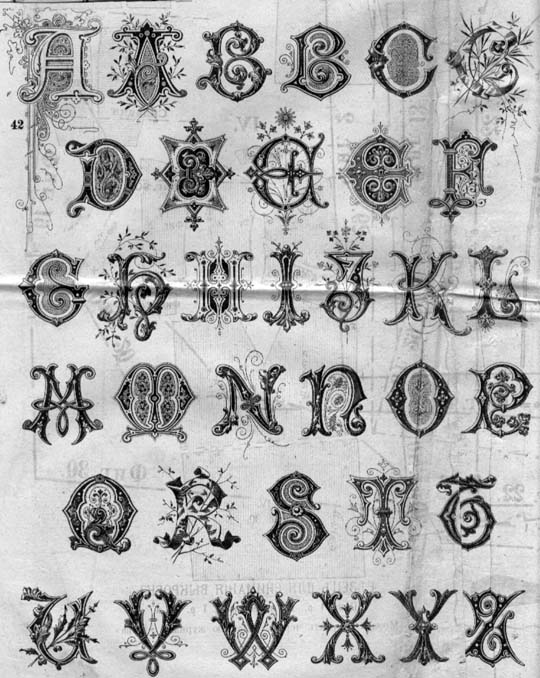 A A B B C C
42
D D E E F
G H H I J K L
M M N N O P
Q R S T T
U V W X Y Z